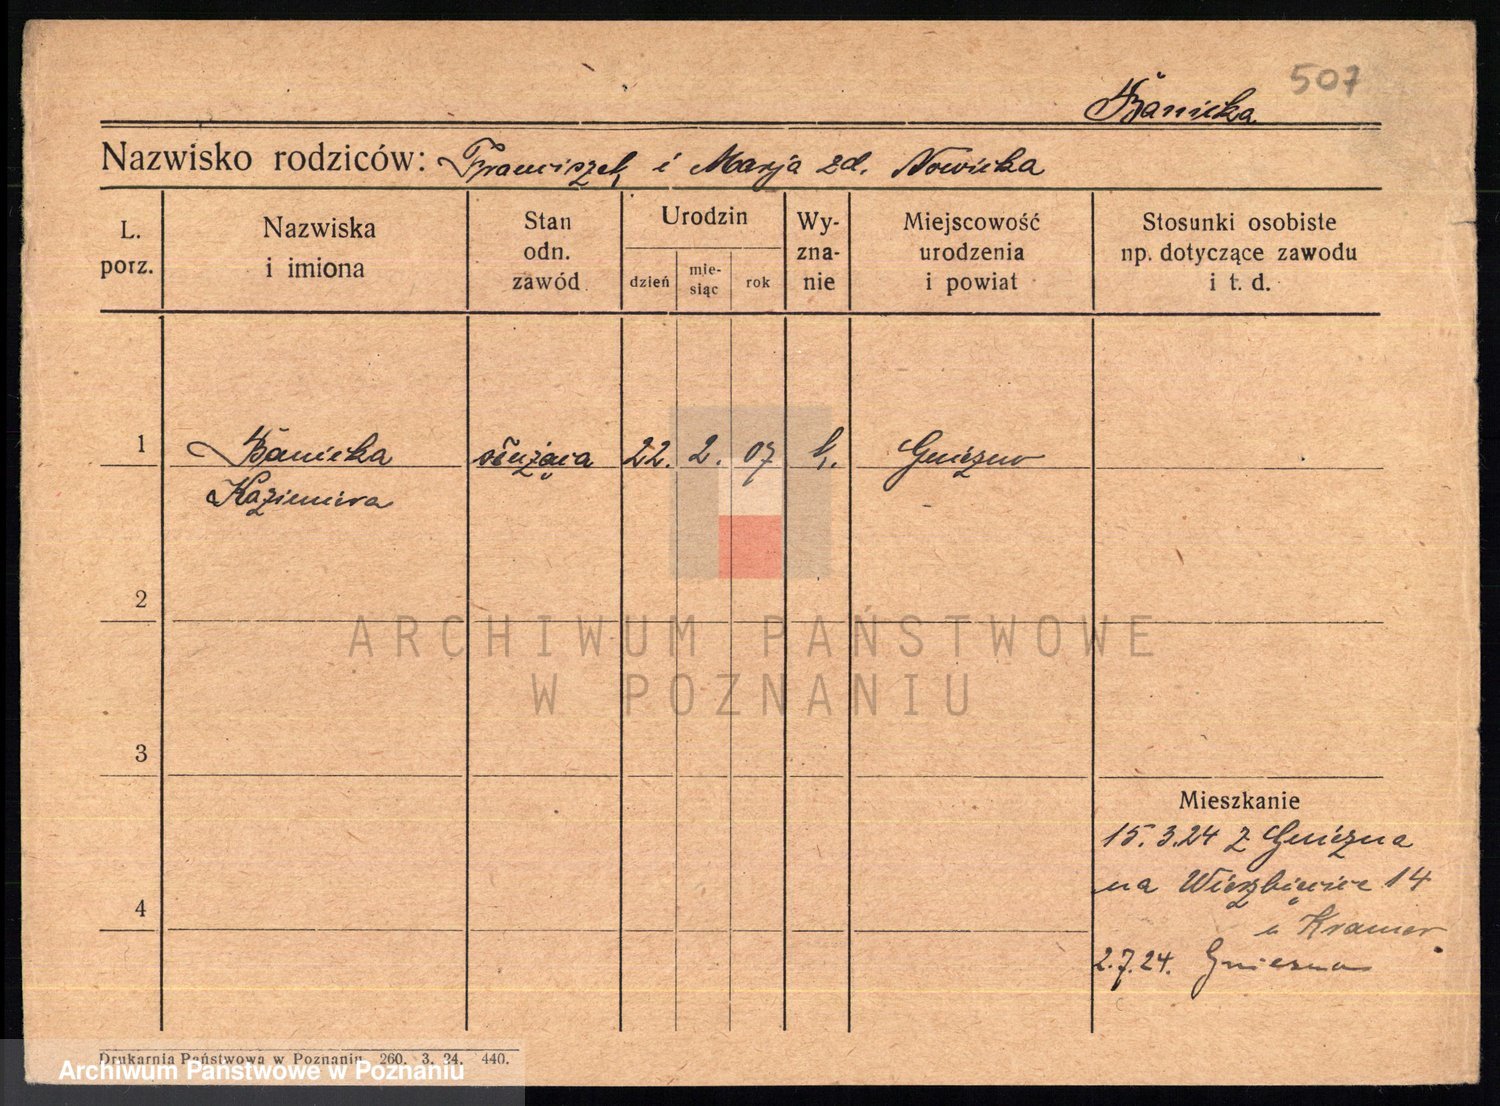 507
Banicka
Nazwisko rodziców: Franciszek i Marja zd. Nowicka
L. porz.
Nazwiska i imiona
Stan odn. zawód
Urodzin
dzień
mie-siąc
rok
Wy-zna-nie
Miejscowość urodzenia i powiat
Stosunki osobiste np. dotyczące zawodu i t. d.
1 Banicka służąca 22. 2. 07 k. Gniezno
Kazimiera
2
3
4
Mieszkanie
15.3.24 z Gniezna
na Wierzbięcice 14
u Kramer
2.7.24. Gniezno
ARCHIWUM PAŃSTWOWE
W POZNANIU
Drukarnia Państwowa w Poznaniu 260. 3. 24. 440.
Archiwum Państwowe w Poznaniu